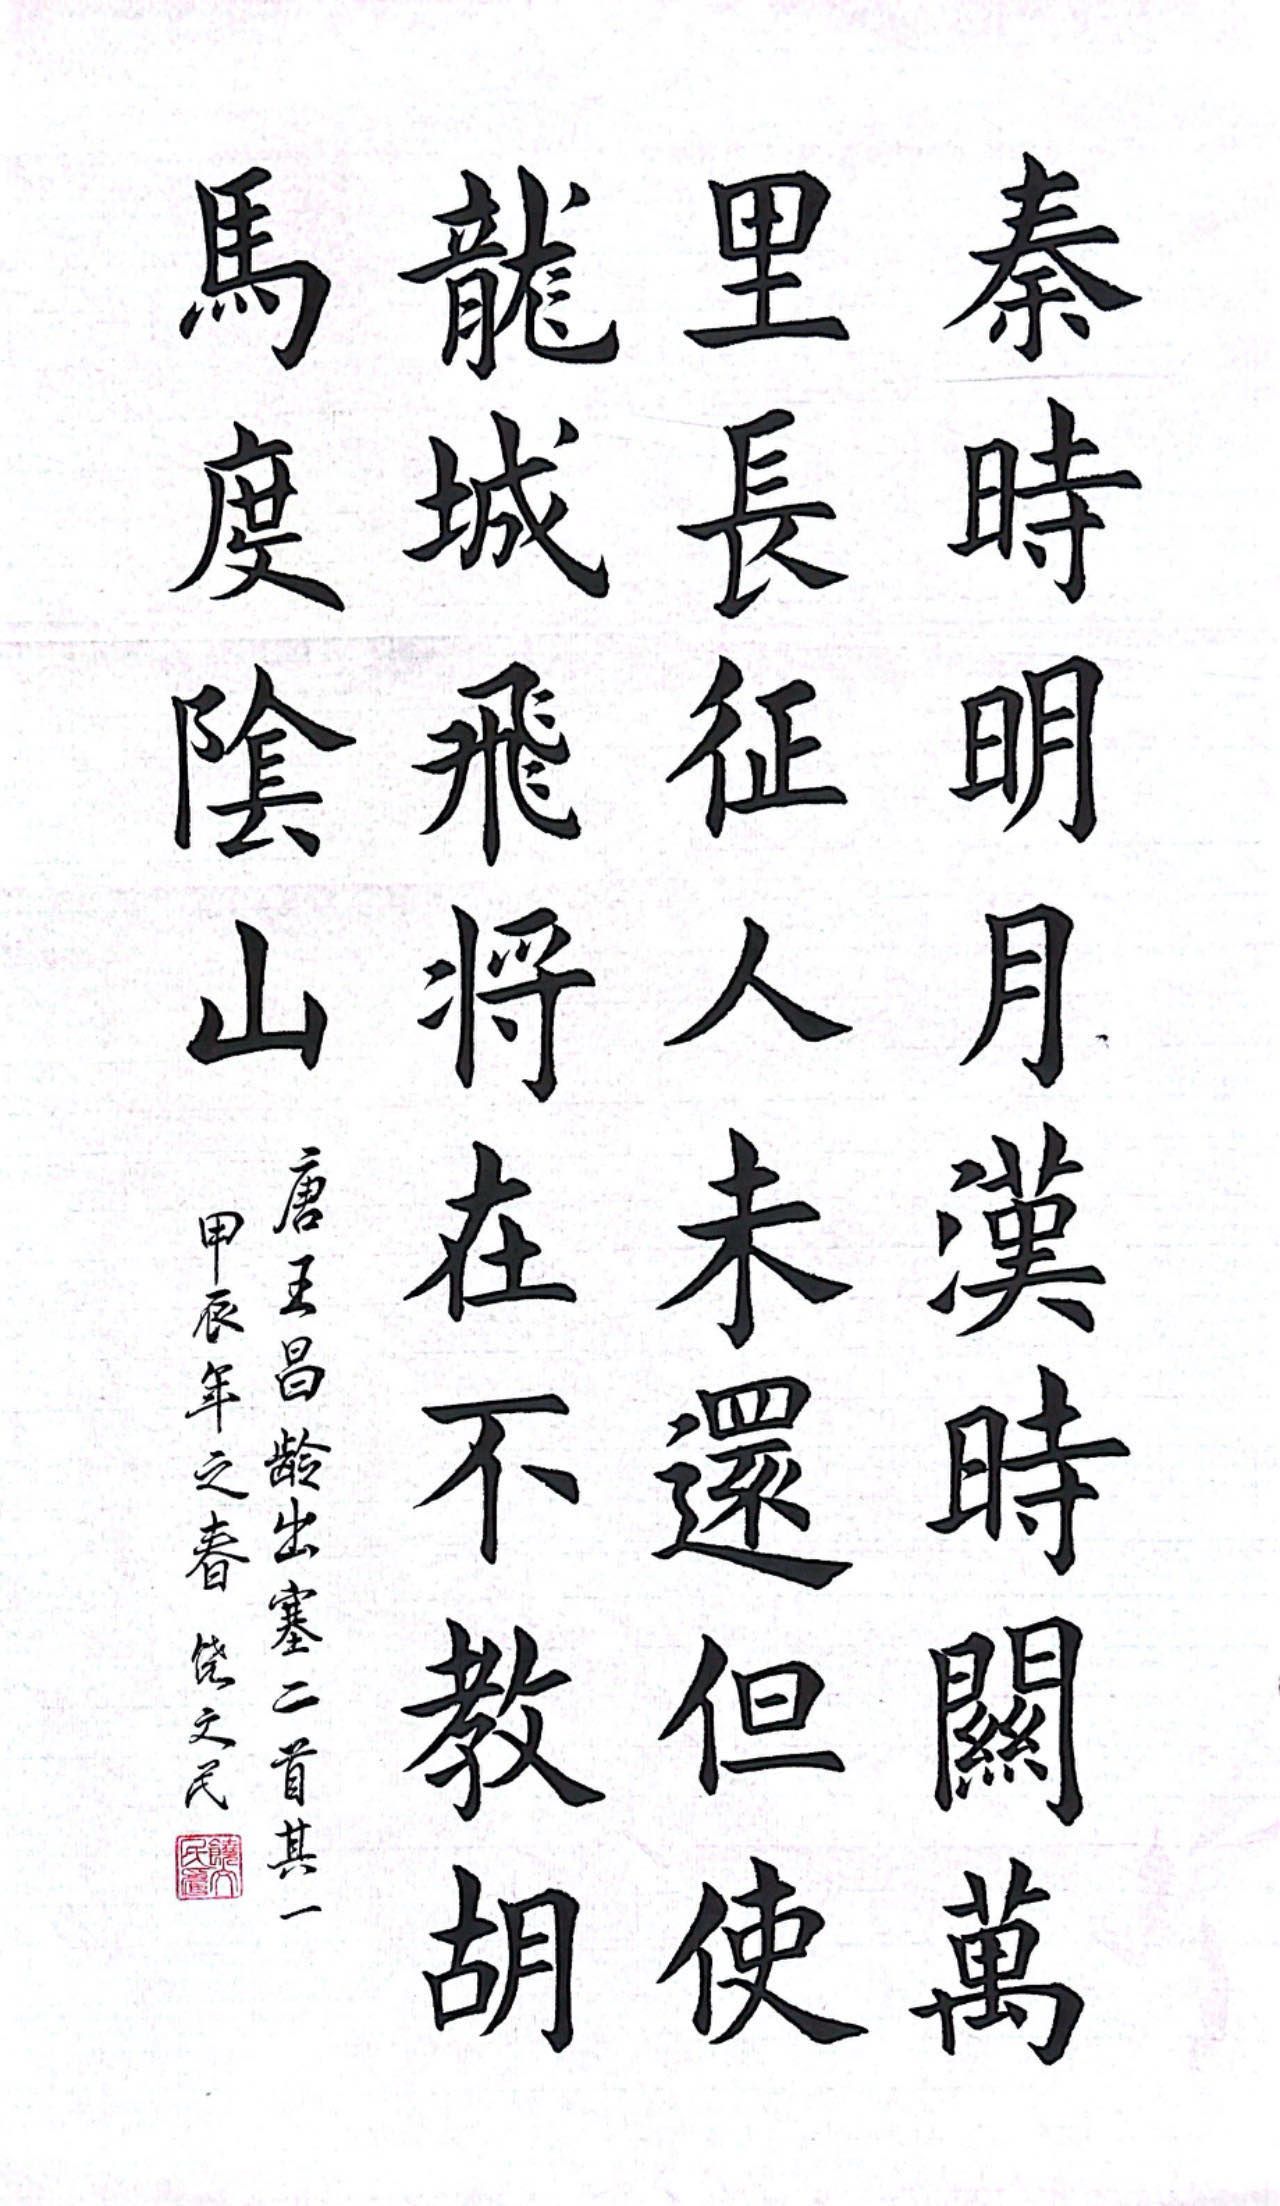 秦時明月漢時關萬
里長征人未還但使
龍城飛將在不教胡
馬度陰山
唐王昌龄出塞二首其一
甲辰年之春 饶文民
饒文民璽